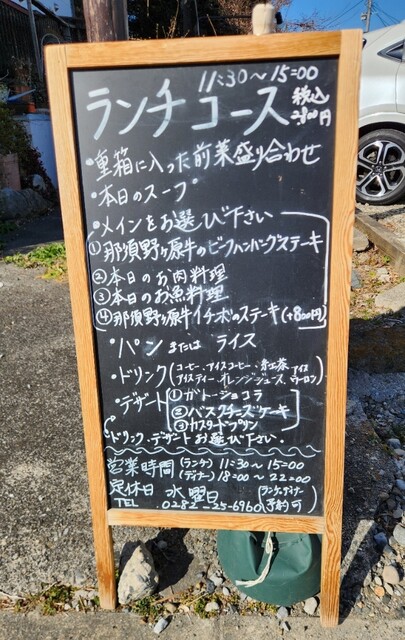 11:30～15:00
ランチコース 税込
2,800円
・重箱に入った前菜盛り合わせ
・本日のスープ
・メインをお選び下さい
①那須野ヶ原牛のビーフハンバーグステーキ
②本日のお肉料理
③本日のお魚料理
④那須野ヶ原牛イチボのステーキ(+800円)
・パン または ライス
・ドリンク(コーヒー、アイスコーヒー、紅茶
アイスティー、オレンジジュース、アイスウーロン)
・デザート ①ガトーショコラ
②バスクチーズケーキ
③カスタードプリン
ドリンク、デザートお選び下さい。
営業時間 (ランチ) 11:30～15:00
(ディナー) 18:00～22:00
定休日 水曜日 (ランチ、ディナー
TEL 0282-25-6960 予約可)